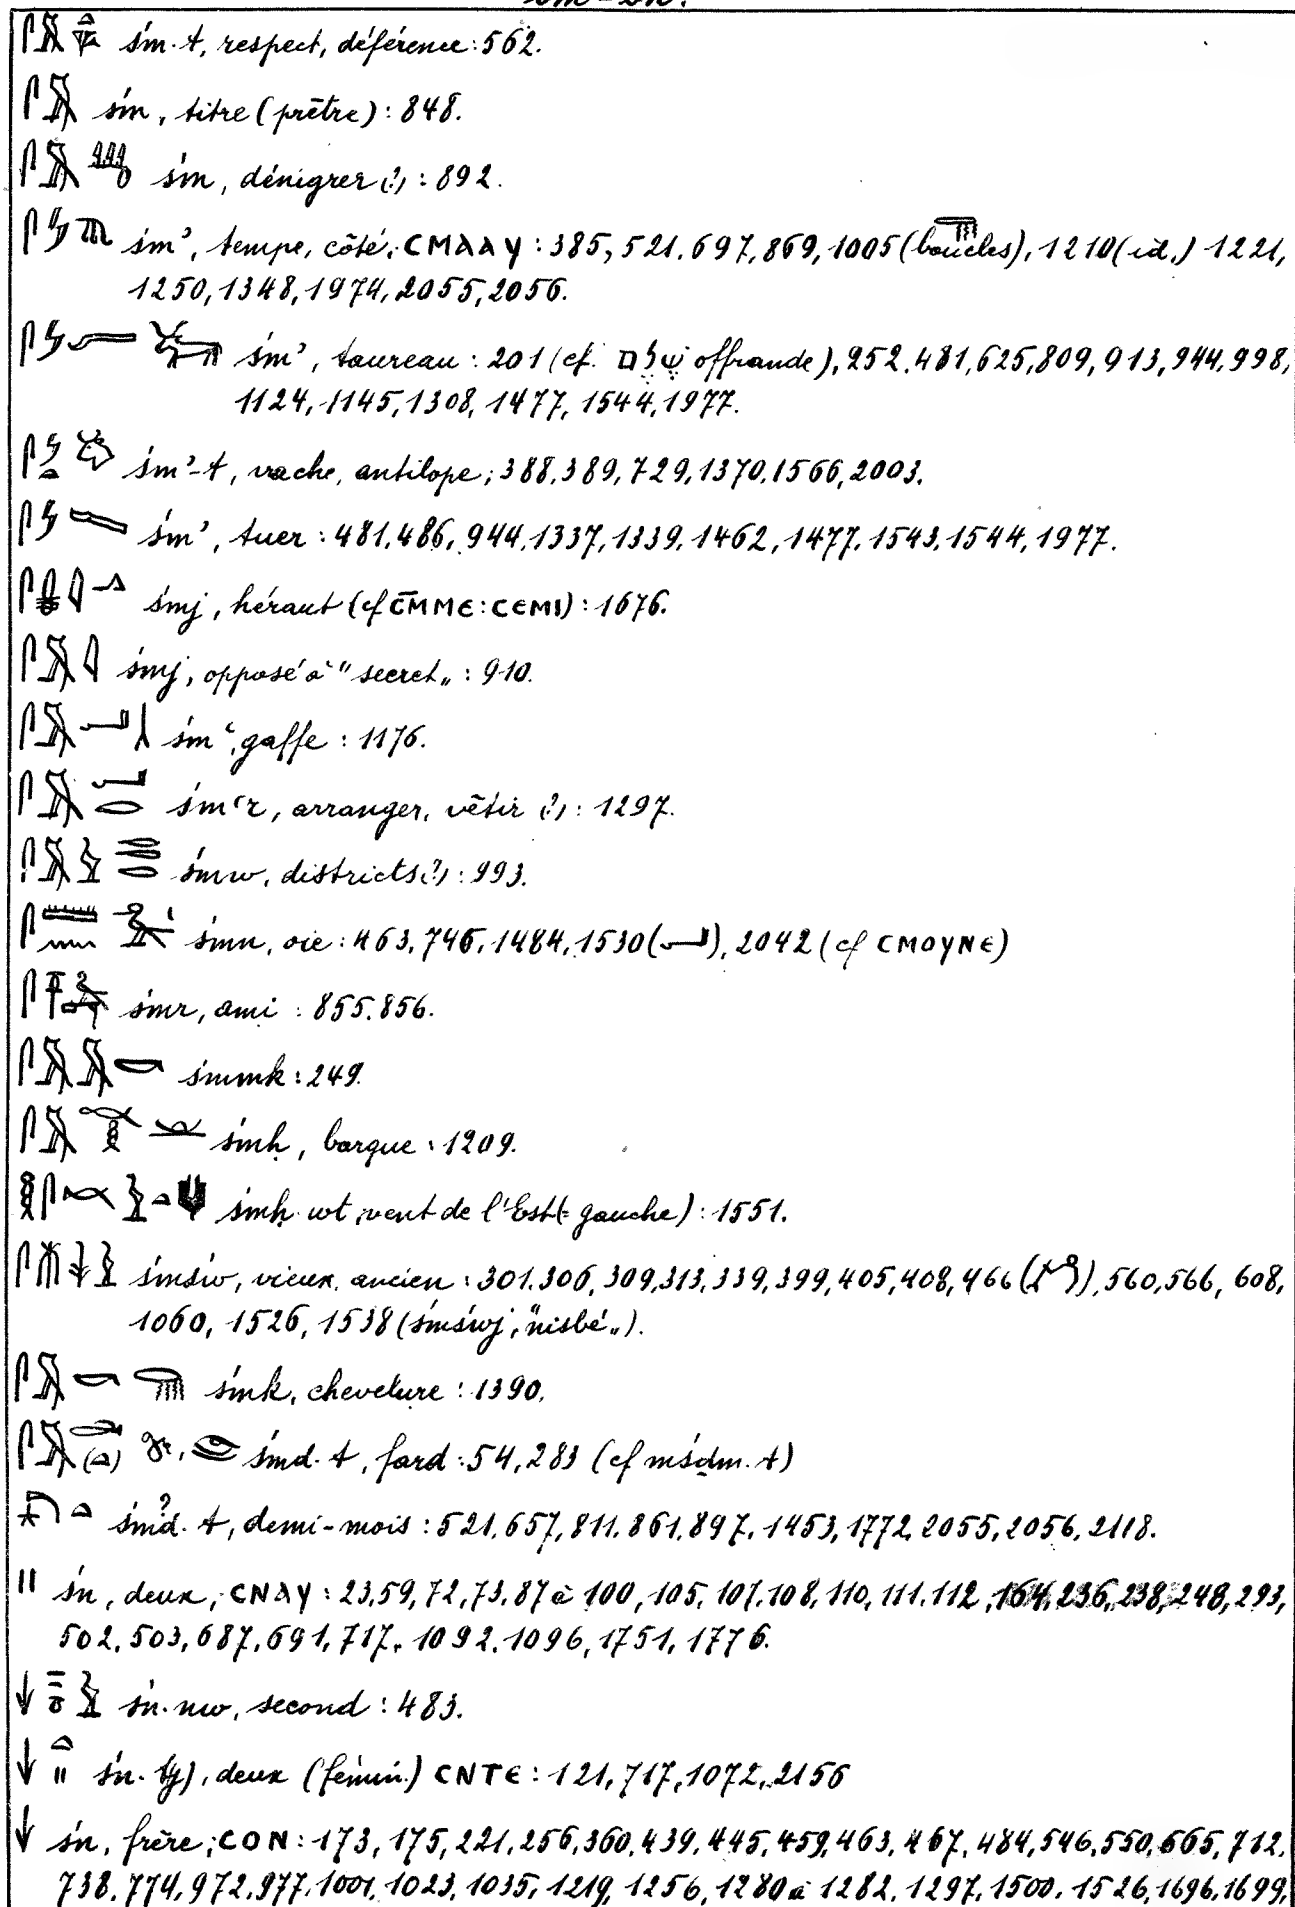 śm-śn.
𓋴𓅓 śm·t, respect, déférence: 562.
𓋴𓅓 śm, titre (prêtre): 848.
𓋴𓅓 śm, dénigrer (?): 892.
śmꜣ, tempe, côté, ⲤⲘⲀⲀⲨ: 385, 521, 697, 869, 1005 (boucles), 1210 (id.) 1221,
1250, 1348, 1974, 2055, 2056.
śmꜣ, taureau: 201 (cf. offrande), 252, 481, 625, 809, 913, 944, 998,
1124, 1145, 1308, 1477, 1544, 1977.
śmꜣ-t, vache, antilope; 388, 389, 729, 1370, 1566, 2003.
śmꜣ, tuer: 481, 486, 944, 1337, 1339, 1462, 1477, 1543, 1544, 1977.
śmj, héraut (cf ⲤⲘⲘⲈ: ⲤⲈⲘⲒ): 1676.
𓋴𓅓𓇋 śmj, opposé à "secret„: 910.
śmꜥ, gaffe: 1176.
𓋴𓅓𓂝𓂋 śmꜥr, arranger, vêtir (?): 1297.
śmw, districts (?): 993.
śmn, oie: 463, 746, 1484, 1530 (𓂝), 2042 (cf ⲤⲘⲞⲨⲚⲈ)
śmr, ami: 855, 856.
𓋴𓅓𓅓𓎡 śmmk: 249.
śmḥ, barque: 1209.
śmḥ·wt, vent de l'Est (= gauche): 1551.
śmśw, vieux, ancien: 301, 306, 309, 313, 339, 399, 405, 408, 466, 560, 566, 608,
1060, 1526, 1538 (śmśwj, "nisbé„).
śmk, chevelure: 1390.
śmd·t, fard: 54, 283 (cf mśdm·t)
śmd?·t, demi-mois: 521, 657, 811, 861, 897, 1453, 1772, 2055, 2056, 2118.
𓏭 śn, deux, ⲤⲚⲀⲨ: 23, 59, 72, 73, 87 à 100, 105, 107, 108, 110, 111, 112, 164, 236, 238, 248, 293,
502, 503, 687, 691, 717, 1092, 1096, 1751, 1776.
śn·nw, second: 483.
śn·t(j), deux (fémin.) ⲤⲚⲦⲈ: 121, 717, 1072, 2156
śn, frère; ⲤⲞⲚ: 173, 175, 221, 256, 360, 439, 445, 459, 463, 467, 484, 546, 550, 665, 712,
738, 774, 972, 977, 1001, 1023, 1035, 1219, 1256, 1280 à 1282, 1297, 1500, 1526, 1696, 1699,